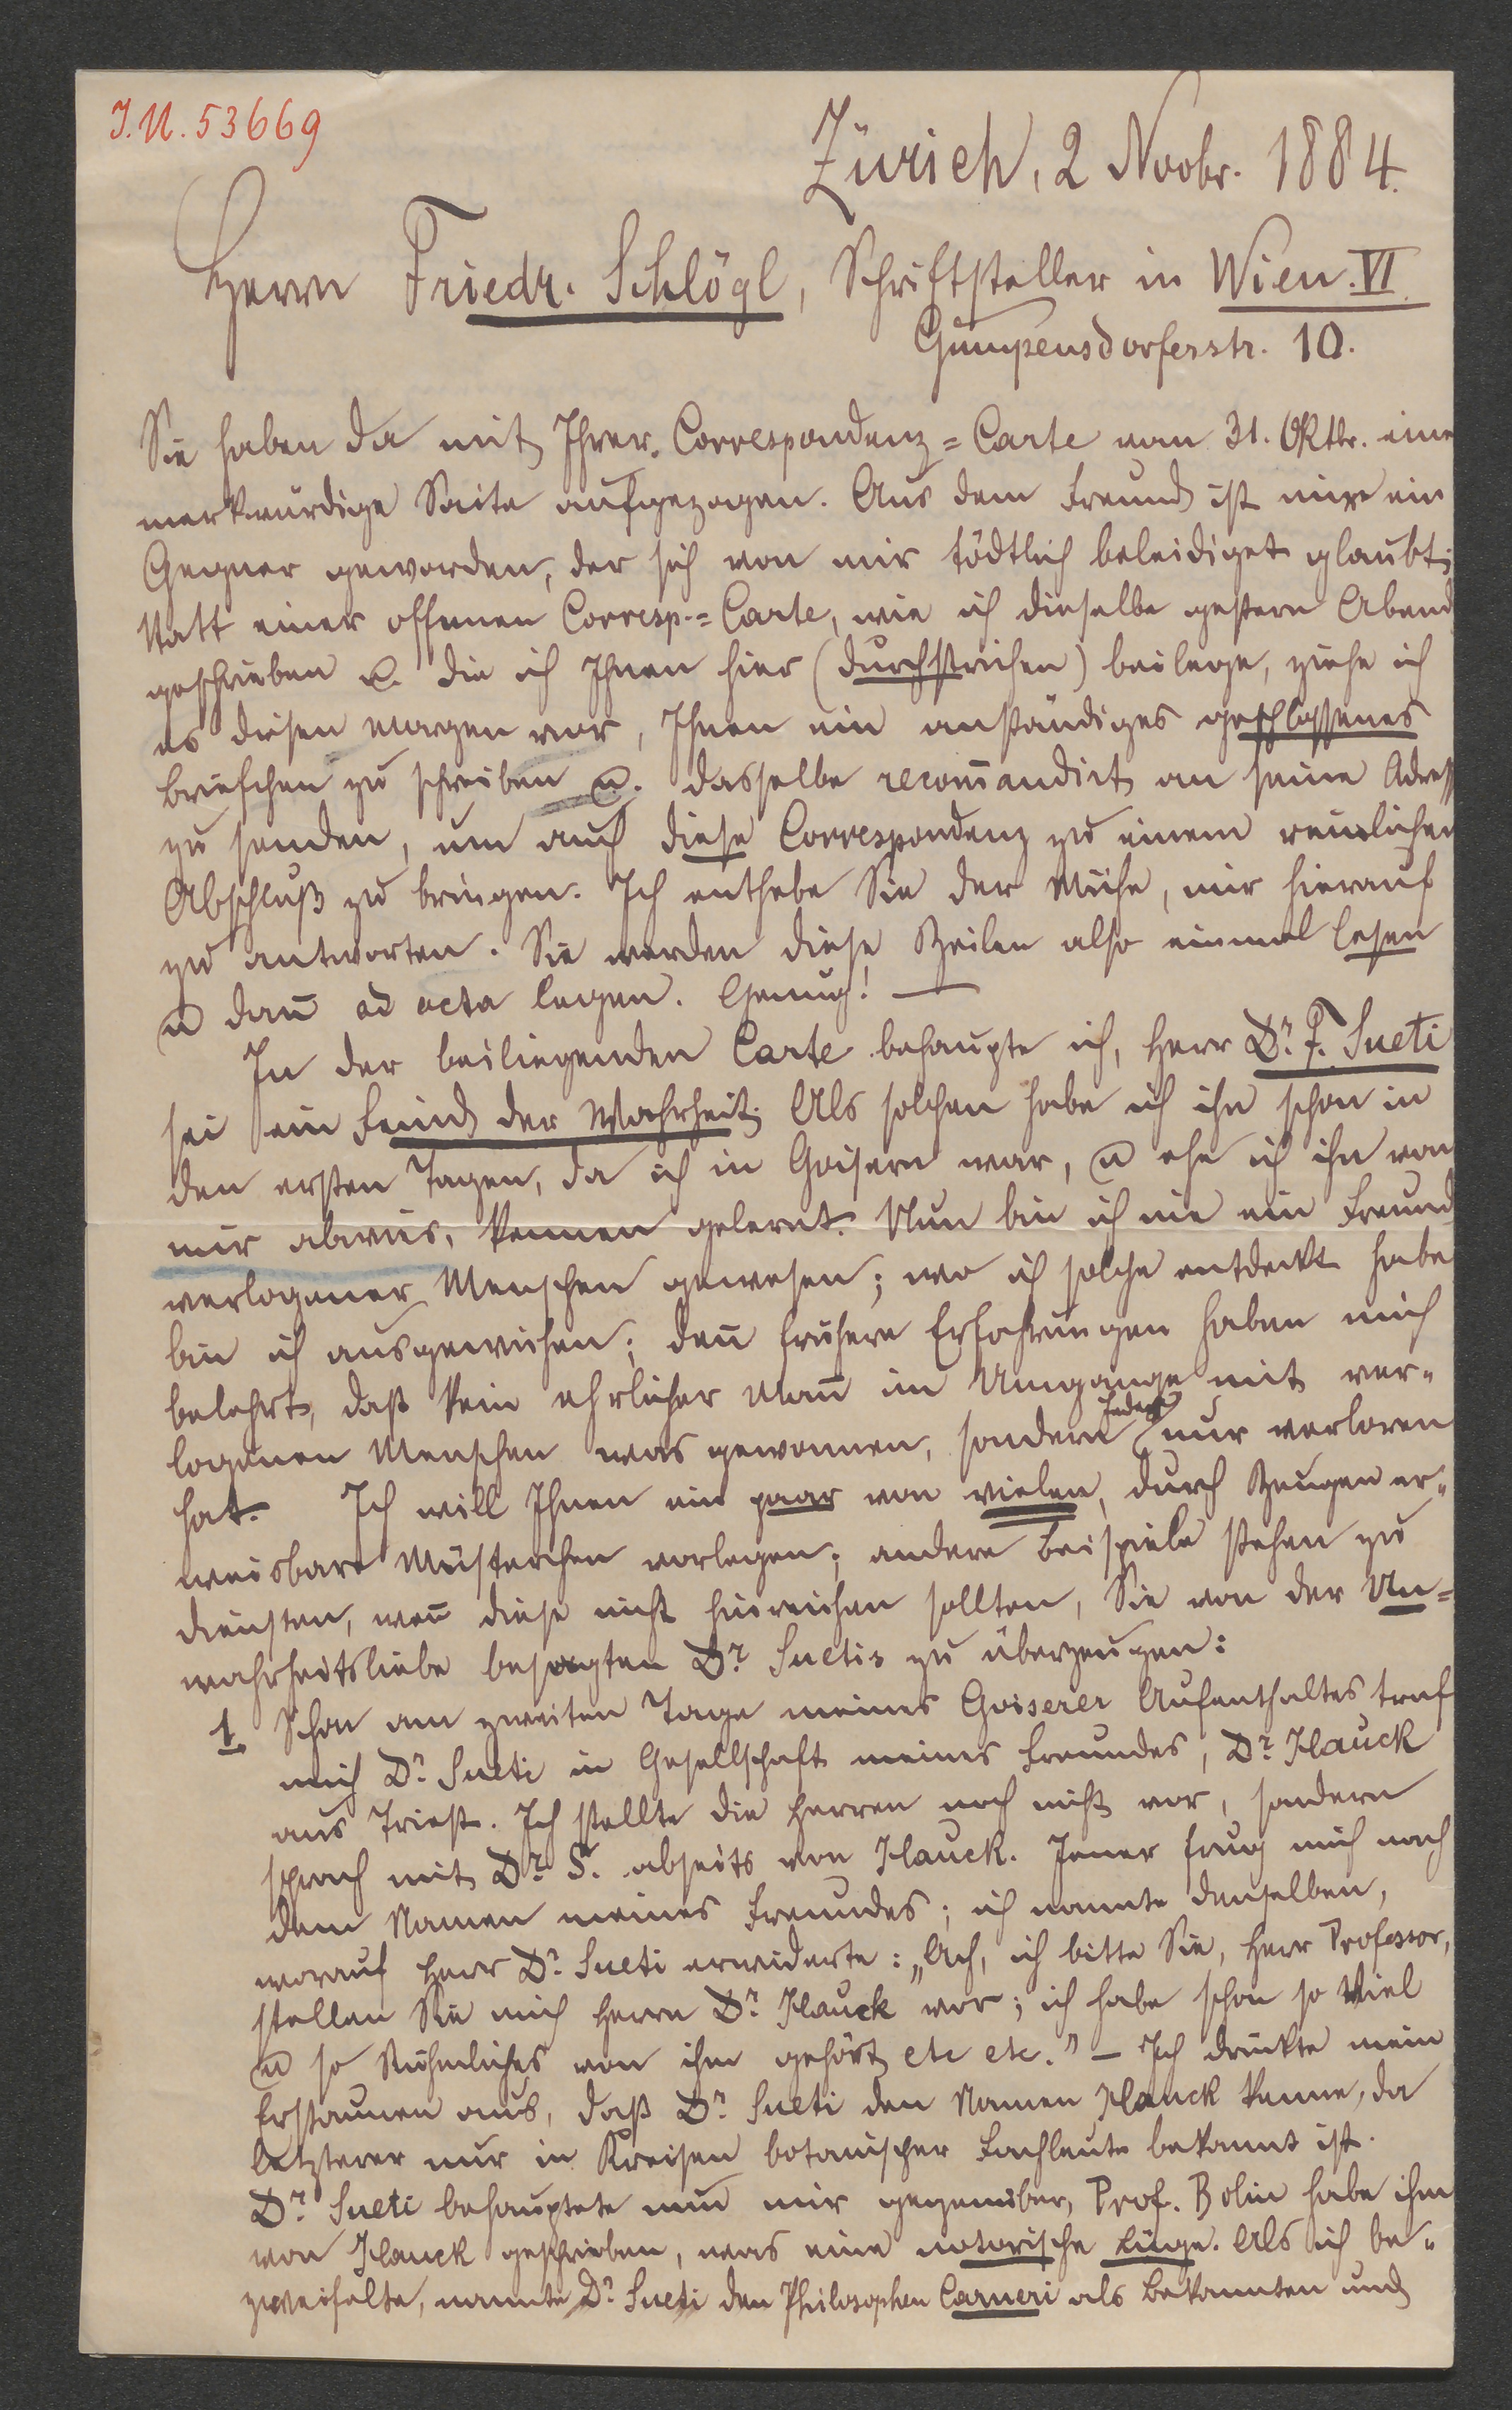 J.N. 53669
Zürich, 2 Novbr. 1884.
Herrn Friedr. Schlögl, Schriftsteller in Wien. VI
Gumpendorferstr. 10.
Sie haben da mit Ihrer Correspondenz=Carte vom 31. Oktbr. eine
merkwürdige Saite aufgezogen. Aus dem Freund ist mir ein
Gegner geworden, der sich von mir tödtlich beleidiget glaubt;
statt einer offenen Corresp.=Carte, wie ich dieselbe gestern Abend
geschrieben u. die ich Ihnen hier (durchstrichen) beilege, ziehe ich
es diesen Morgen vor, Ihnen ein anständiges geschlossenes
Briefchen zu schreiben u. dasselbe recom̄andirt an seine Adresse
zu senden, um auch diese Correspondenz zu einem reinlichen
Abschluß zu bringen. Ich enthebe Sie der Mühe, mir hierauf
zu antworten. Sie werden diese Zeilen also einmal lesen
u dan̄ ad acta legen. Genug! —
In der beiliegenden Carte behaupte ich, Herr Dr. F. Sueti
sei ein Feind der Wahrheit. Als solchen habe ich ihn schon in
den ersten Tagen, da ich in Goisern war, u ehe ich ihn von
mir abwies, kennen gelernt. Nun bin ich nie ein Freund
verlogener Menschen gewesen; wo ich solche entdeckt habe
bin ich ausgewichen; den̄ frühere Erfahrungen haben mich
belehrt, daß kein ehrlicher Man̄ im Umgange mit ver-
logenen Menschen was gewonnen, sondern jeder nur verloren
hat. Ich will Ihnen ein paar von vielen, durch Zeugen er-
weisbare Müsterchen vorlegen; andere Beispiele stehen zu
diensten, wen̄ diese nicht hinreichen sollten, Sie von der Un=
wahrheitsliebe besagten Dr. Suetis zu überzeugen:
1. Schon am zweiten Tage meines Goiserer Aufenthaltes traf
mich Dr. Sueti in Gesellschaft meines Freundes, Dr. Hauck
aus Triest. Ich stellte die Herren noch nicht vor, sondern
sprach mit Dr. S. abseits von Hauck. Jener frug mich nach
dem Namen meines Freundes; ich nannte denselben,
worauf Herr Dr. Sueti erwiderte: „Ach, ich bitte Sie, Herr Professor,
stellen Sie mich Herrn Dr. Hauck vor; ich habe schon so Viel
u so Rühmliches von ihm gehört etc etc.“ – Ich drückte mein
Erstaunen aus, daß Dr. Sueti den Namen Hauck kenne, da
letzterer nur in Kreisen botanischer Fachleute bekannt ist.
Dr. Sueti behauptete nun mir gegenüber, Prof. Bolin habe ihm
von Hauck geschrieben, was eine notorische Lüge. Als ich be-
zweifelte, nannte Dr. Sueti den Philosophen Carneri als Bekannten und